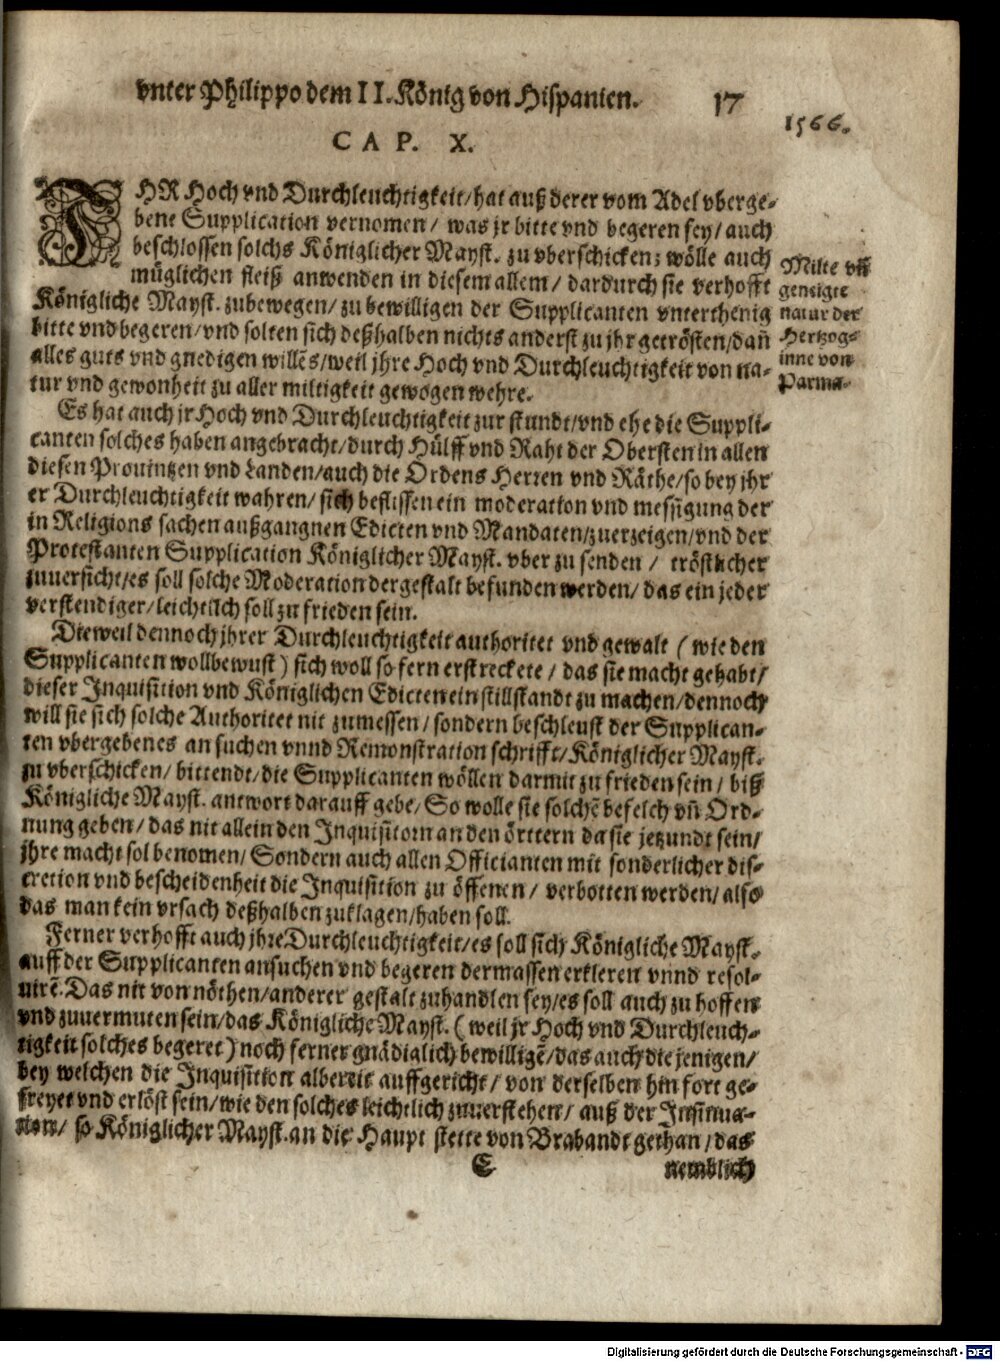 vnter Philippo dem II. König von Hispanien. 17
1566.
CAP. X.
IHR Hoch vnd Durchleuchtigkeit/ hat auß derer vom Adel vberge-
bene Supplication vernomen/ was jr bitte vnd begeren sey/ auch
beschlossen solchs Königlicher Mayst. zu vberschicken; wölle auch
müglichen fleiß anwenden in diesem allem/ dardurch sie verhofft
Königliche Mayst. zubewegen/ zu bewilligen der Supplicanten vnterthenig
bitte vnd begeren/ vnd solten sich deßhalben nichts anderst zu jhr getrösten/ dañ
alles guts vnd gnedigen willẽs/ weil jhre Hoch vnd Durchleuchtigkeit von na-
tur vnd gewonheit zu aller miltigkeit gewogen wehre.
Milte vñ
geneigte
natur der
Hertzog-
inne von
Parma.
Es hat auch jr Hoch vnd Durchleuchtigkeit zur stundt/ vnd ehe die Suppli-
canten solches haben angebracht/ durch Hülff vnd Raht der Obersten in allen
diesen Prouintzen vnd Landen/ auch die Ordens Herren vnd Räthe/ so bey jhr
er Durchleuchtigkeit wahren/ sich beflissen ein moderation vnd messigung der
in Religions sachen außgangnen Edicten vnd Mandaten/ zuerzeigen/ vnd der
Protestanten Supplication Königlicher Mayst. vber zu senden/ tröstlicher
zuuersicht/ es soll solche Moderation dergestalt befunden werden/ das ein jeder
verstendiger/ leichtlich soll zu frieden sein.
Dieweil dennoch jhrer Durchleuchtigkeit authoritet vnd gewalt (wie den
Supplicanten wollbewust) sich woll so fern erstreckete/ das sie macht gehabt/
dieser Inquisition vnd Königlichen Edicten ein stillstandt zu machen/ dennoch
will sie sich solche Authoritet nit zumessen/ sondern beschleust der Supplican-
ten vbergebenes ansuchen vnnd Remonstration schrifft/ Königlicher Mayst.
zu vberschicken/ bittendt/ die Supplicanten wöllen darmit zu frieden sein/ biß
Königliche Mayst. antwort darauff gebe/ So wolle sie solchẽ befelch vñ Ord-
nung geben/ das nit allein den Inquisitorn an den örttern da sie jetzundt sein/
jhre macht sol benomen/ Sondern auch allen Officianten mit sonderlicher dis-
cretion vnd bescheidenheit die Inquisition zu öffenen/ verbotten werden/ also
das man kein vrsach deßhalben zuklagen/ haben soll.
Ferner verhofft auch jhre Durchleuchtigkeit/ es soll sich Königliche Mayst.
auff der Supplicanten ansuchen vnd begeren dermassen erkleren vnnd resol-
uirẽ. Das nit von nöthen/ anderer gestalt zuhandlen sey/ es soll auch zu hoffen
vnd zuuermuten sein/ das Königliche Mayst. (weil jr Hoch vnd Durchleuch-
tigkeit solches begeret) noch ferner gnädiglich bewilligẽ/ das auch die jenigen/
bey welchen die Inquisition albereit auffgericht/ von derselben hin fort ge-
freyet vnd erlöst sein/ wie den solches leichtlich zuuerstehen/ auß der Insinua-
tion/ so Königlicher Mayst. an die Haupt stette von Brabandt gethan/ das
E nemblich
Digitalisierung gefördert durch die Deutsche Forschungsgemeinschaft - DFG